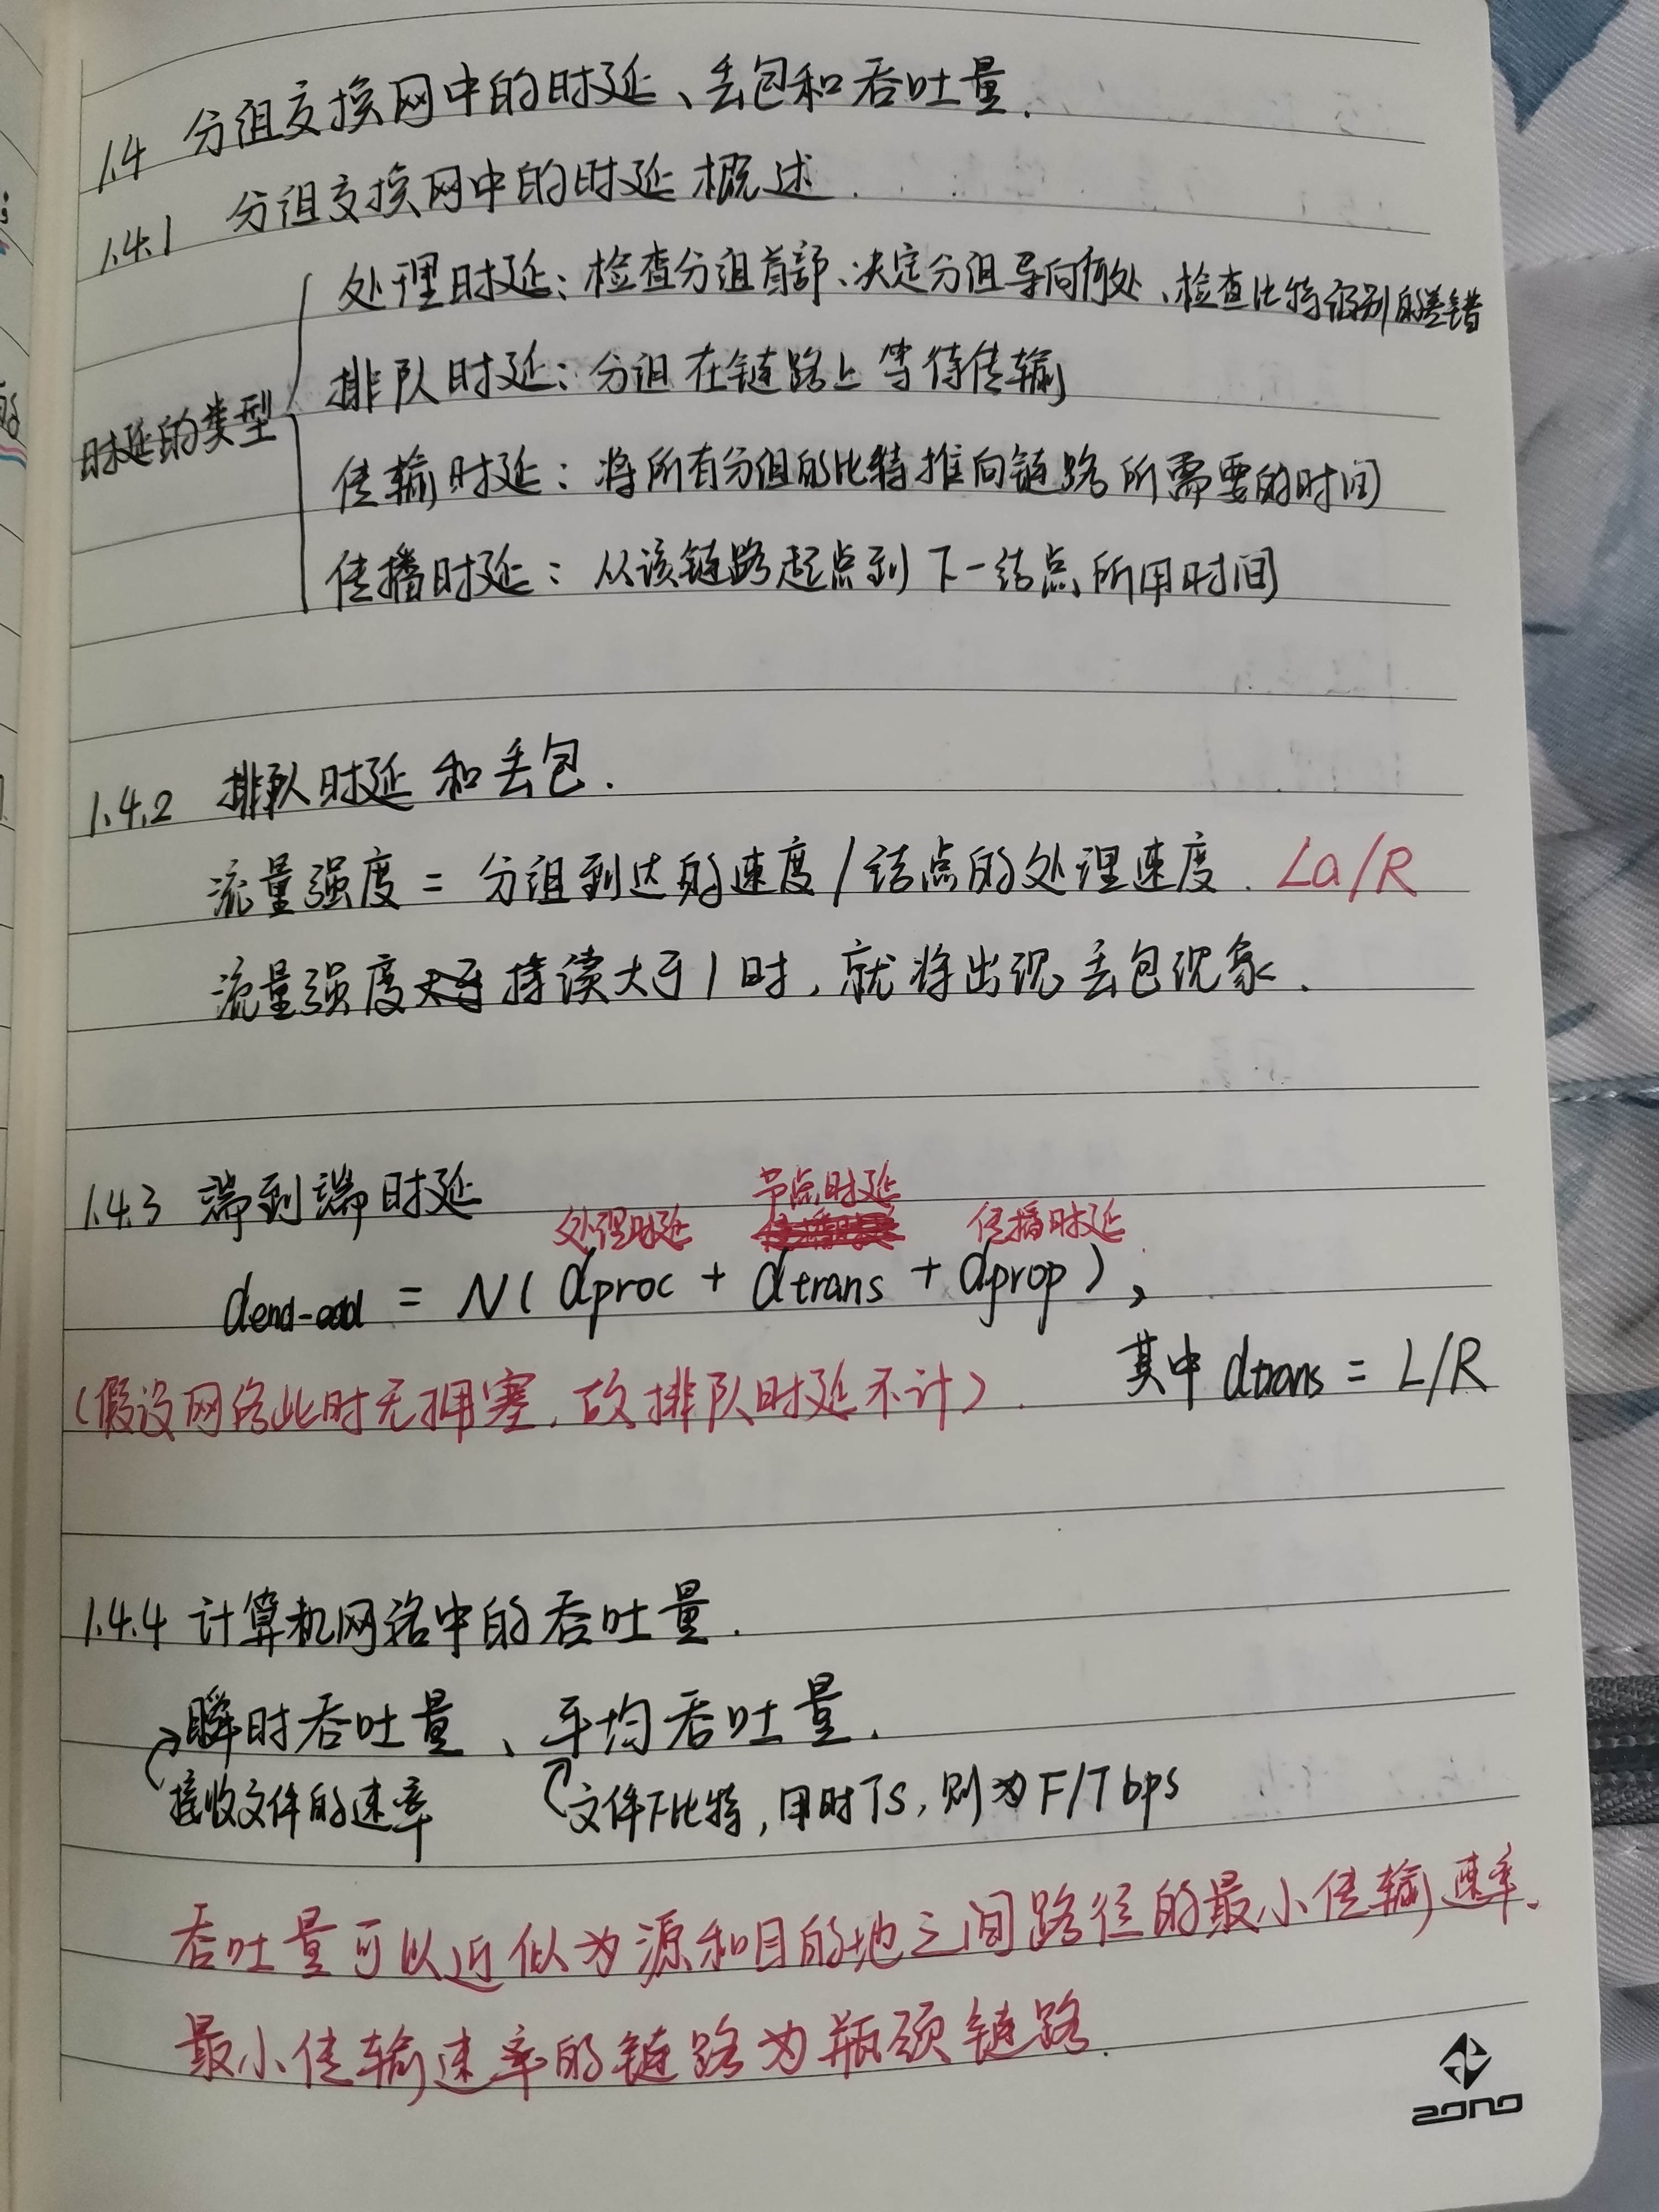 1.4 分组交换网中的时延、丢包和吞吐量.
1.4.1 分组交换网中的时延概述.
时延的类型
处理时延：检查分组首部、决定分组导向何处、检查比特级别的差错
排队时延：分组在链路上等待传输
传输时延：将所有分组的比特推向链路所需要的时间
传播时延：从该链路起点到下一结点所用时间
1.4.2 排队时延和丢包.
流量强度 = 分组到达的速度/结点的处理速度. La/R
流量强度持续大于1时，就将出现丢包现象.
1.4.3 端到端时延
处理时延 节点时延 传播时延
dend-end = N( dproc + dtrans + dprop ),
其中 dtrans = L/R
(假设网络此时无拥塞，故排队时延不计).
1.4.4 计算机网络中的吞吐量.
瞬时吞吐量、平均吞吐量.
接收文件的速率 文件F比特，用时Ts，则为F/T bps
吞吐量可以近似为源和目的地之间路径的最小传输速率.
最小传输速率的链路为瓶颈链路.